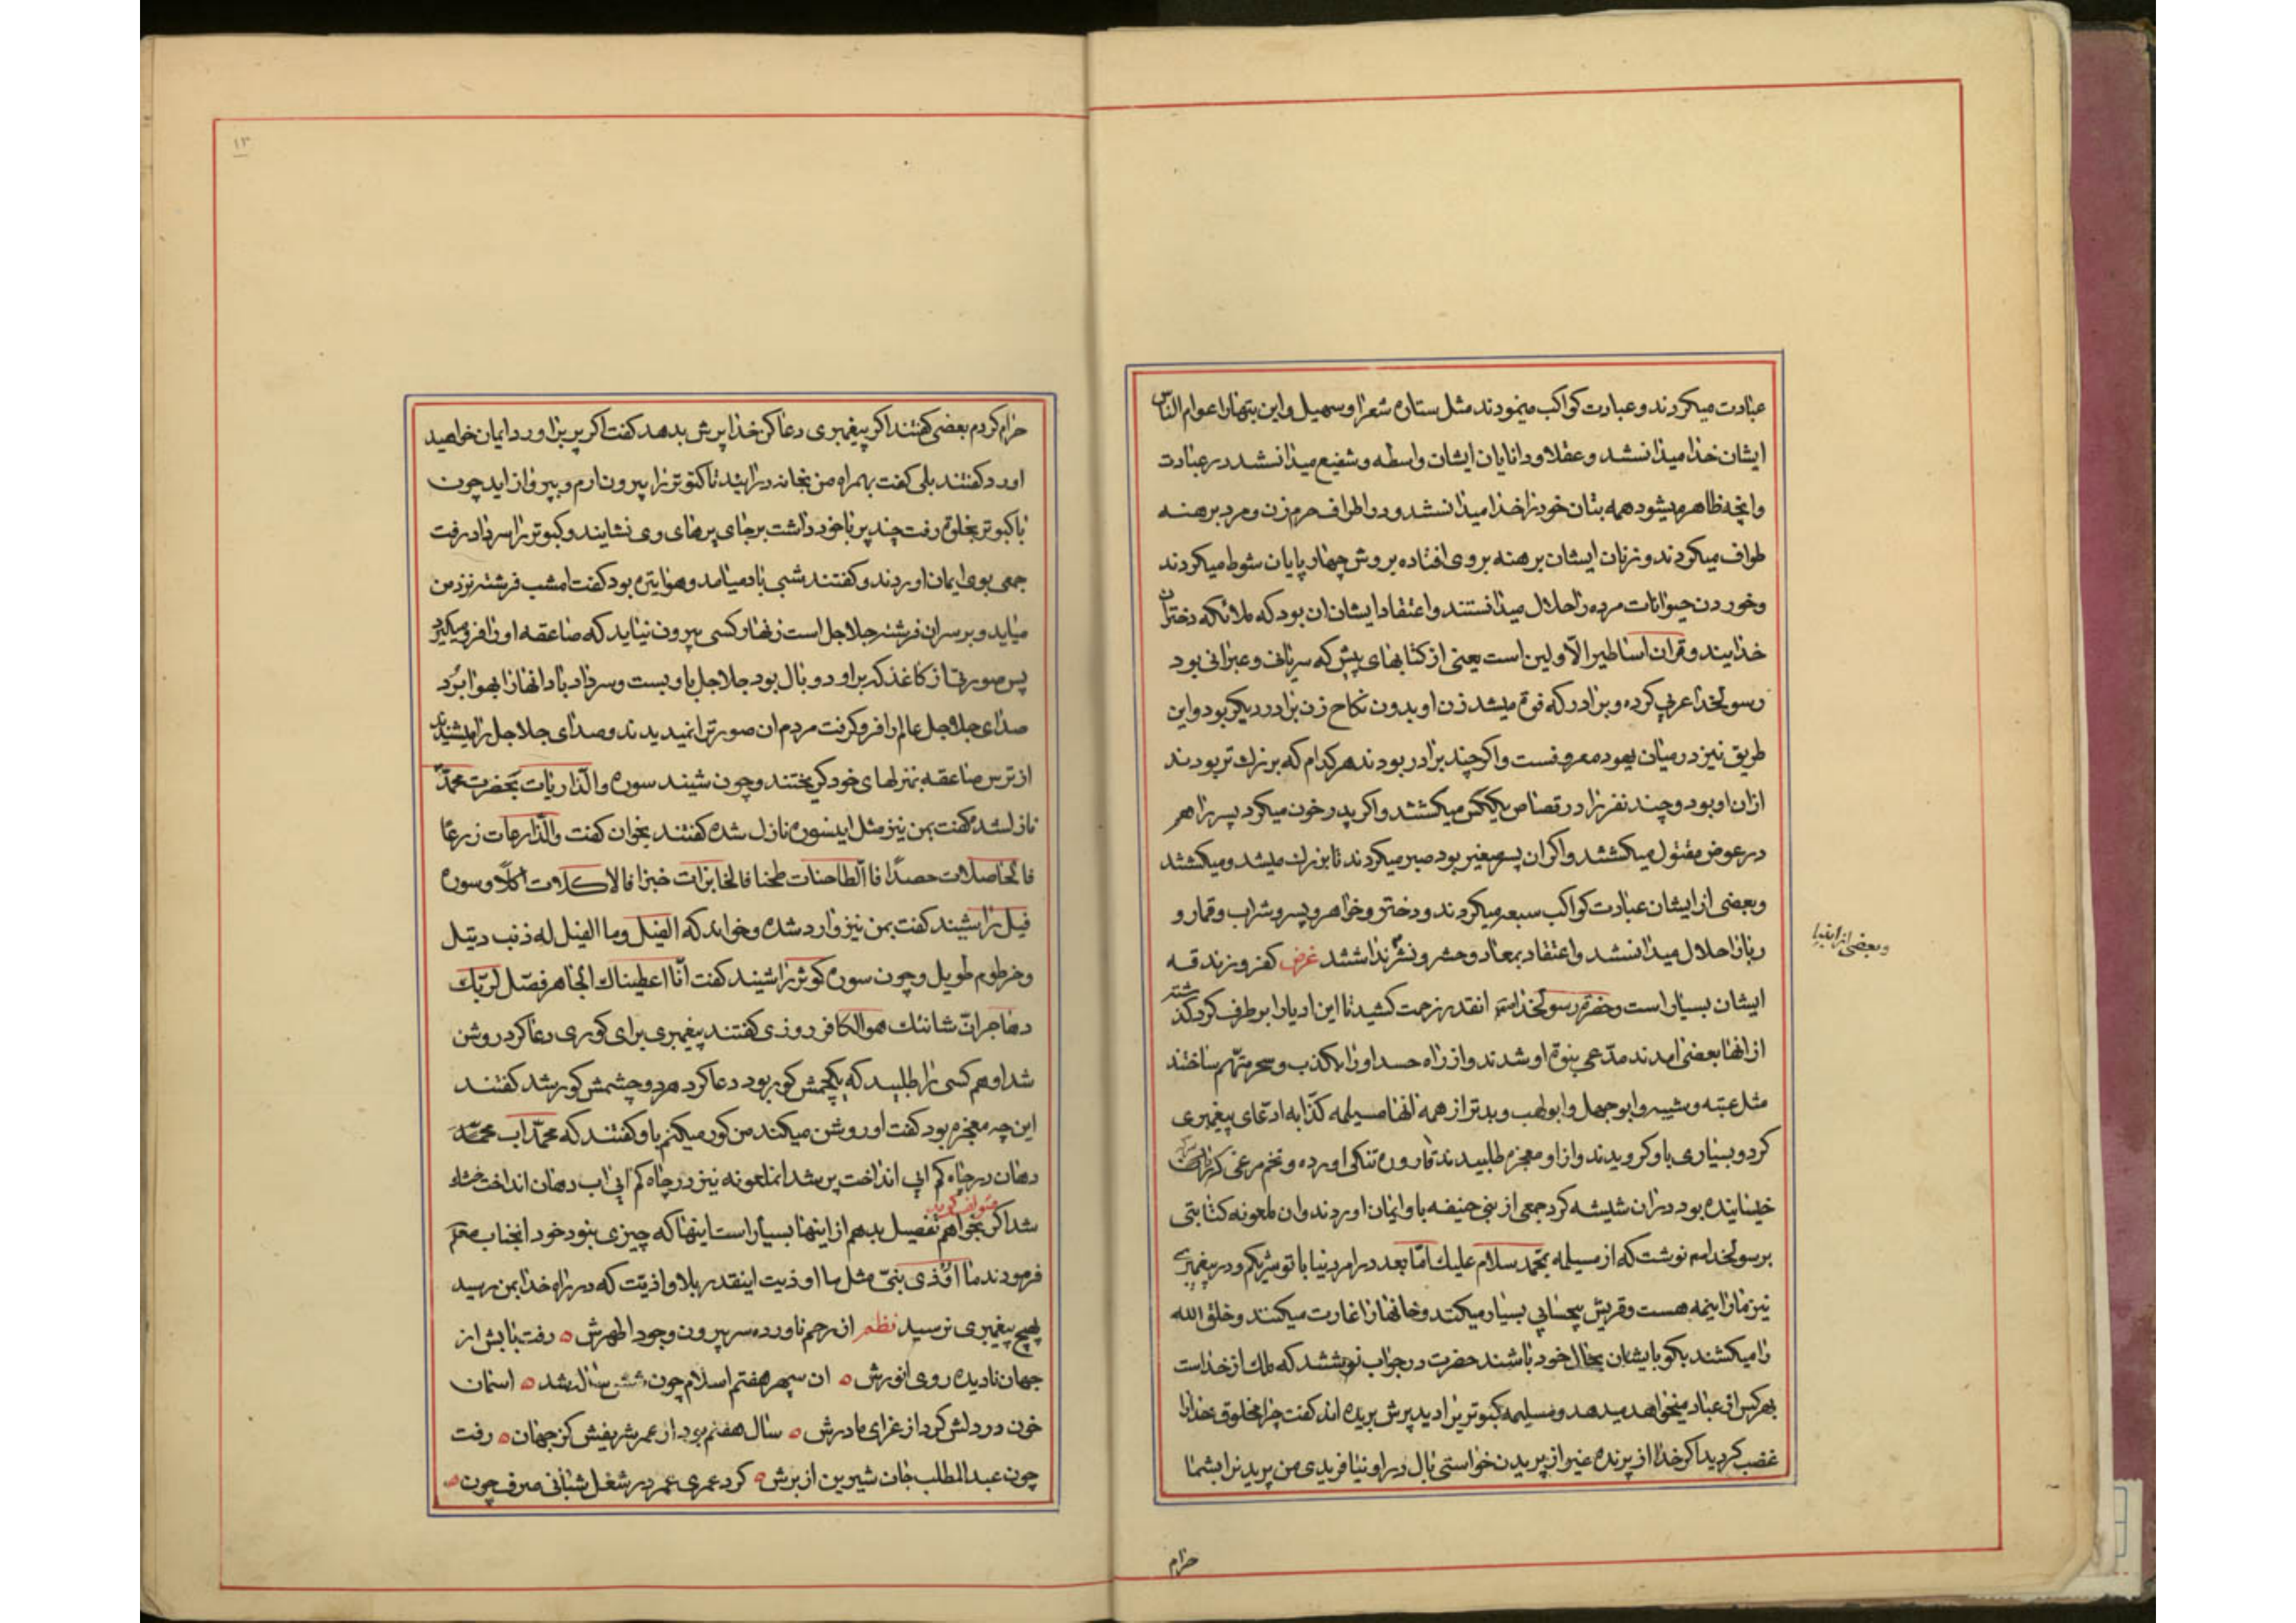 عبادت میکردند و عبادت کواکب مینمودند مثل ستاره شعرا و سهیل و این بتهارا عوام الناس
ایشان خدا میدانستند و عقلا و دانایان ایشان واسطه و شفیع میدانستند در عبادت
و انچه ظاهر میشود همه بتان خودرا خدا میدانستند و در اطراف حرم زن و مرد برهنه
طواف میکردند و زنان ایشان برهنه بروی افتاده بروش چهار پایان شوط میکردند
و خوردن حیوانات مرده را حلال میدانستند و اعتقاد ایشان ان بود که ملائکه دختران
خدایند و قران اساطیر الاولین است یعنی از کتابهای پیش که سریانی و عبرانی بود
رسولخدا عربی کرده و برادر که فوت میشد زن او بدون نکاح زن برادر دیگر بود و این
طریق نیز در میان یهود معروفست و اکر چند برادر بودند هرکدام که بزرك تر بودند
ازان او بود و چند نفر را در قصاص یکس میکشتند و اکر پدر خون میکرد پسر را هم
در عوض مقتول میکشتند و اکر ان پسر صغیر بود صبر میکردند تا بزرك میشد و میکشتند
و بعضی از ایشان عبادت کواکب سبعه میکردند و دختر و خواهر و پسر و شراب و قمار و
ربا را حلال میدانستند و اعتقاد بمعاد و حشر و نشر نداشتند غرض کفر و زندقه
و بعضی از انبیا
ایشان بسیار است و حضرت رسولخدا انقدر زحمت کشید تا این ادیانرا بر طرف کرد
ازانها بعضی امدند مدعی بنوة او شدند و از راه حسد اورا بکذب و سحر متهم ساختند
مثل عتبه و شیبه و ابوجهل و ابولهب و بدتر از همه انها مسیلمه کذابه ادعای پیغمبری
کرد و بسیاری باو کرویدند و از او معجزه طلبیدند قاروره تنکی اورده و تخم مرغی که در
خیسانیده بود دران شیشه کرد جمعی از بنی حنیفه باو ایمان اوردند وان ملعونه کتابتی
برسولخدا نوشت که از مسیلمه بمحمد سلام علیك اما بعد در امر دنیا با تو شریکم و در پیغمبری
نیز مارا نیمه هست و قریش بیحسابی بسیار میکنند و خانهارا غارت میکنند و خلق الله
را میکشند بکو با ایشان بحال خود باشند حضرت در جواب نوشتند که ملك از خداست
بهرکس از عباد میخواهد میدهد و مسیلمه کبوتریرا دید پرش بریده اند کفت چرا مخلوق خدارا
غضب کردید اکر خدا از پرنده غیر از پریدن خواستی بال در او نیافریدی من پریدنرا بشما
حرام
۱۳
حرام کردم بعضی کفتند اکر پیغمبری دعا کن خدا پرش بدهد کفت اکر پر برا ورد ایمان خواهید
اورد کفتند بلی کفت بهمراه من بخانه در ایید تا کبوتر را بیرون ارم و بپرواز اید چون
با کبوتر بخلوة رفت چند پر با خود داشت بر جای پرهای وی نشانید و کبوتر را سر داد رفت
جمعی بوی ایمان اوردند و کفتند شبی باد میامد و هوا تیره بود کفت امشب فرشته نزد من
میاید و بر سر ان فرشته جلاجل است زنهار کسی بیرون نیاید که صاعقه اورا فرو میکیرد
پس صورتی از کاغذ که بر او دو بال بود جلاجل باو بست و سر داد باد انهارا بهوا برد
صدای جلاجل عالمرا فرو کرفت مردم ان صورترا نمیدیدند و صدای جلاجل را میشنیدند
از ترس صاعقه بمنزلهای خود کریختند و چون شنید سوره والذاریات بحضرت محمد
نازلشده کفت بمن نیز مثل اینسوره نازل شده کفتند بخوان کفت والذارعات زرعا
فالحاصدات حصدا فا الطاحنات طحنا فالخابزات خبزا فالاکلات اکلا و سوره
فیل را شنید کفت بمن نیز وارد شده و خواند که الفیل و ما الفیل له ذنب دتیل
و خرطوم طویل و چون سوره کوثر را شنید کفت انا اعطیناك الجاهر فصل لربك
و هاجر ان شانئك هو الکافر روزی کفتند پیغمبری برای کوری دعا کرد روشن
شد او هم کسی را طلبید که یکچشمش کور بود دعا کرد هر دو چشمش کور شد کفتند
این چه معجزه بود کفت او روشن میکند من کور میکنم باو کفتند که محمد اب
دهان در چاه کم ابی انداخت پر شد انملعونه نیز در چاه کم ابی اب دهان انداخت
شد اکر بخواهم تفصیل بدهم از اینها بسیار است اینها که چیزی نبود خود انجناب
فرمودند ما اوذی نبی مثل ما اوذیت اینقدر بلا و اذیت که در راه خدا بمن رسید
بهیچ پیغمبری نرسید نظم از رحم ناورده سر بیرون وجود اطهرش ه رفت بابش از
جهان نادیده روی انورش ه ان سپهر هفتم اسلام چون شش سال شد ه اسمان
خون در دلش کرد از عزای مادرش ه سال هفتم بود از عمر شریفش کز جهان ه رفت
چون عبدالمطلب جان شیرین از برش ه کرد عمری عمر در شغل شبانی صرف چون ه